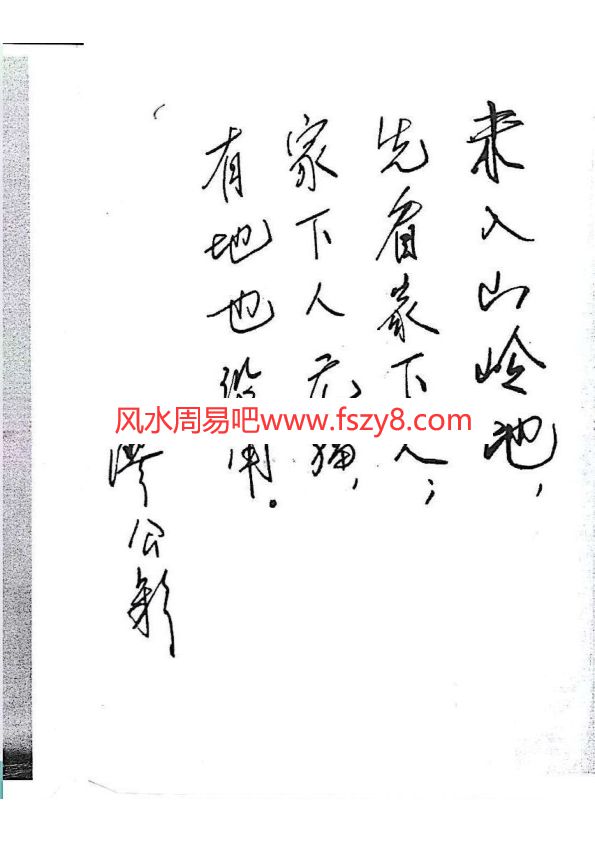 未入山岭池，
先看家下人；
家下人无福，
有地也没用。
廖公
风水周易吧www.fszy8.com